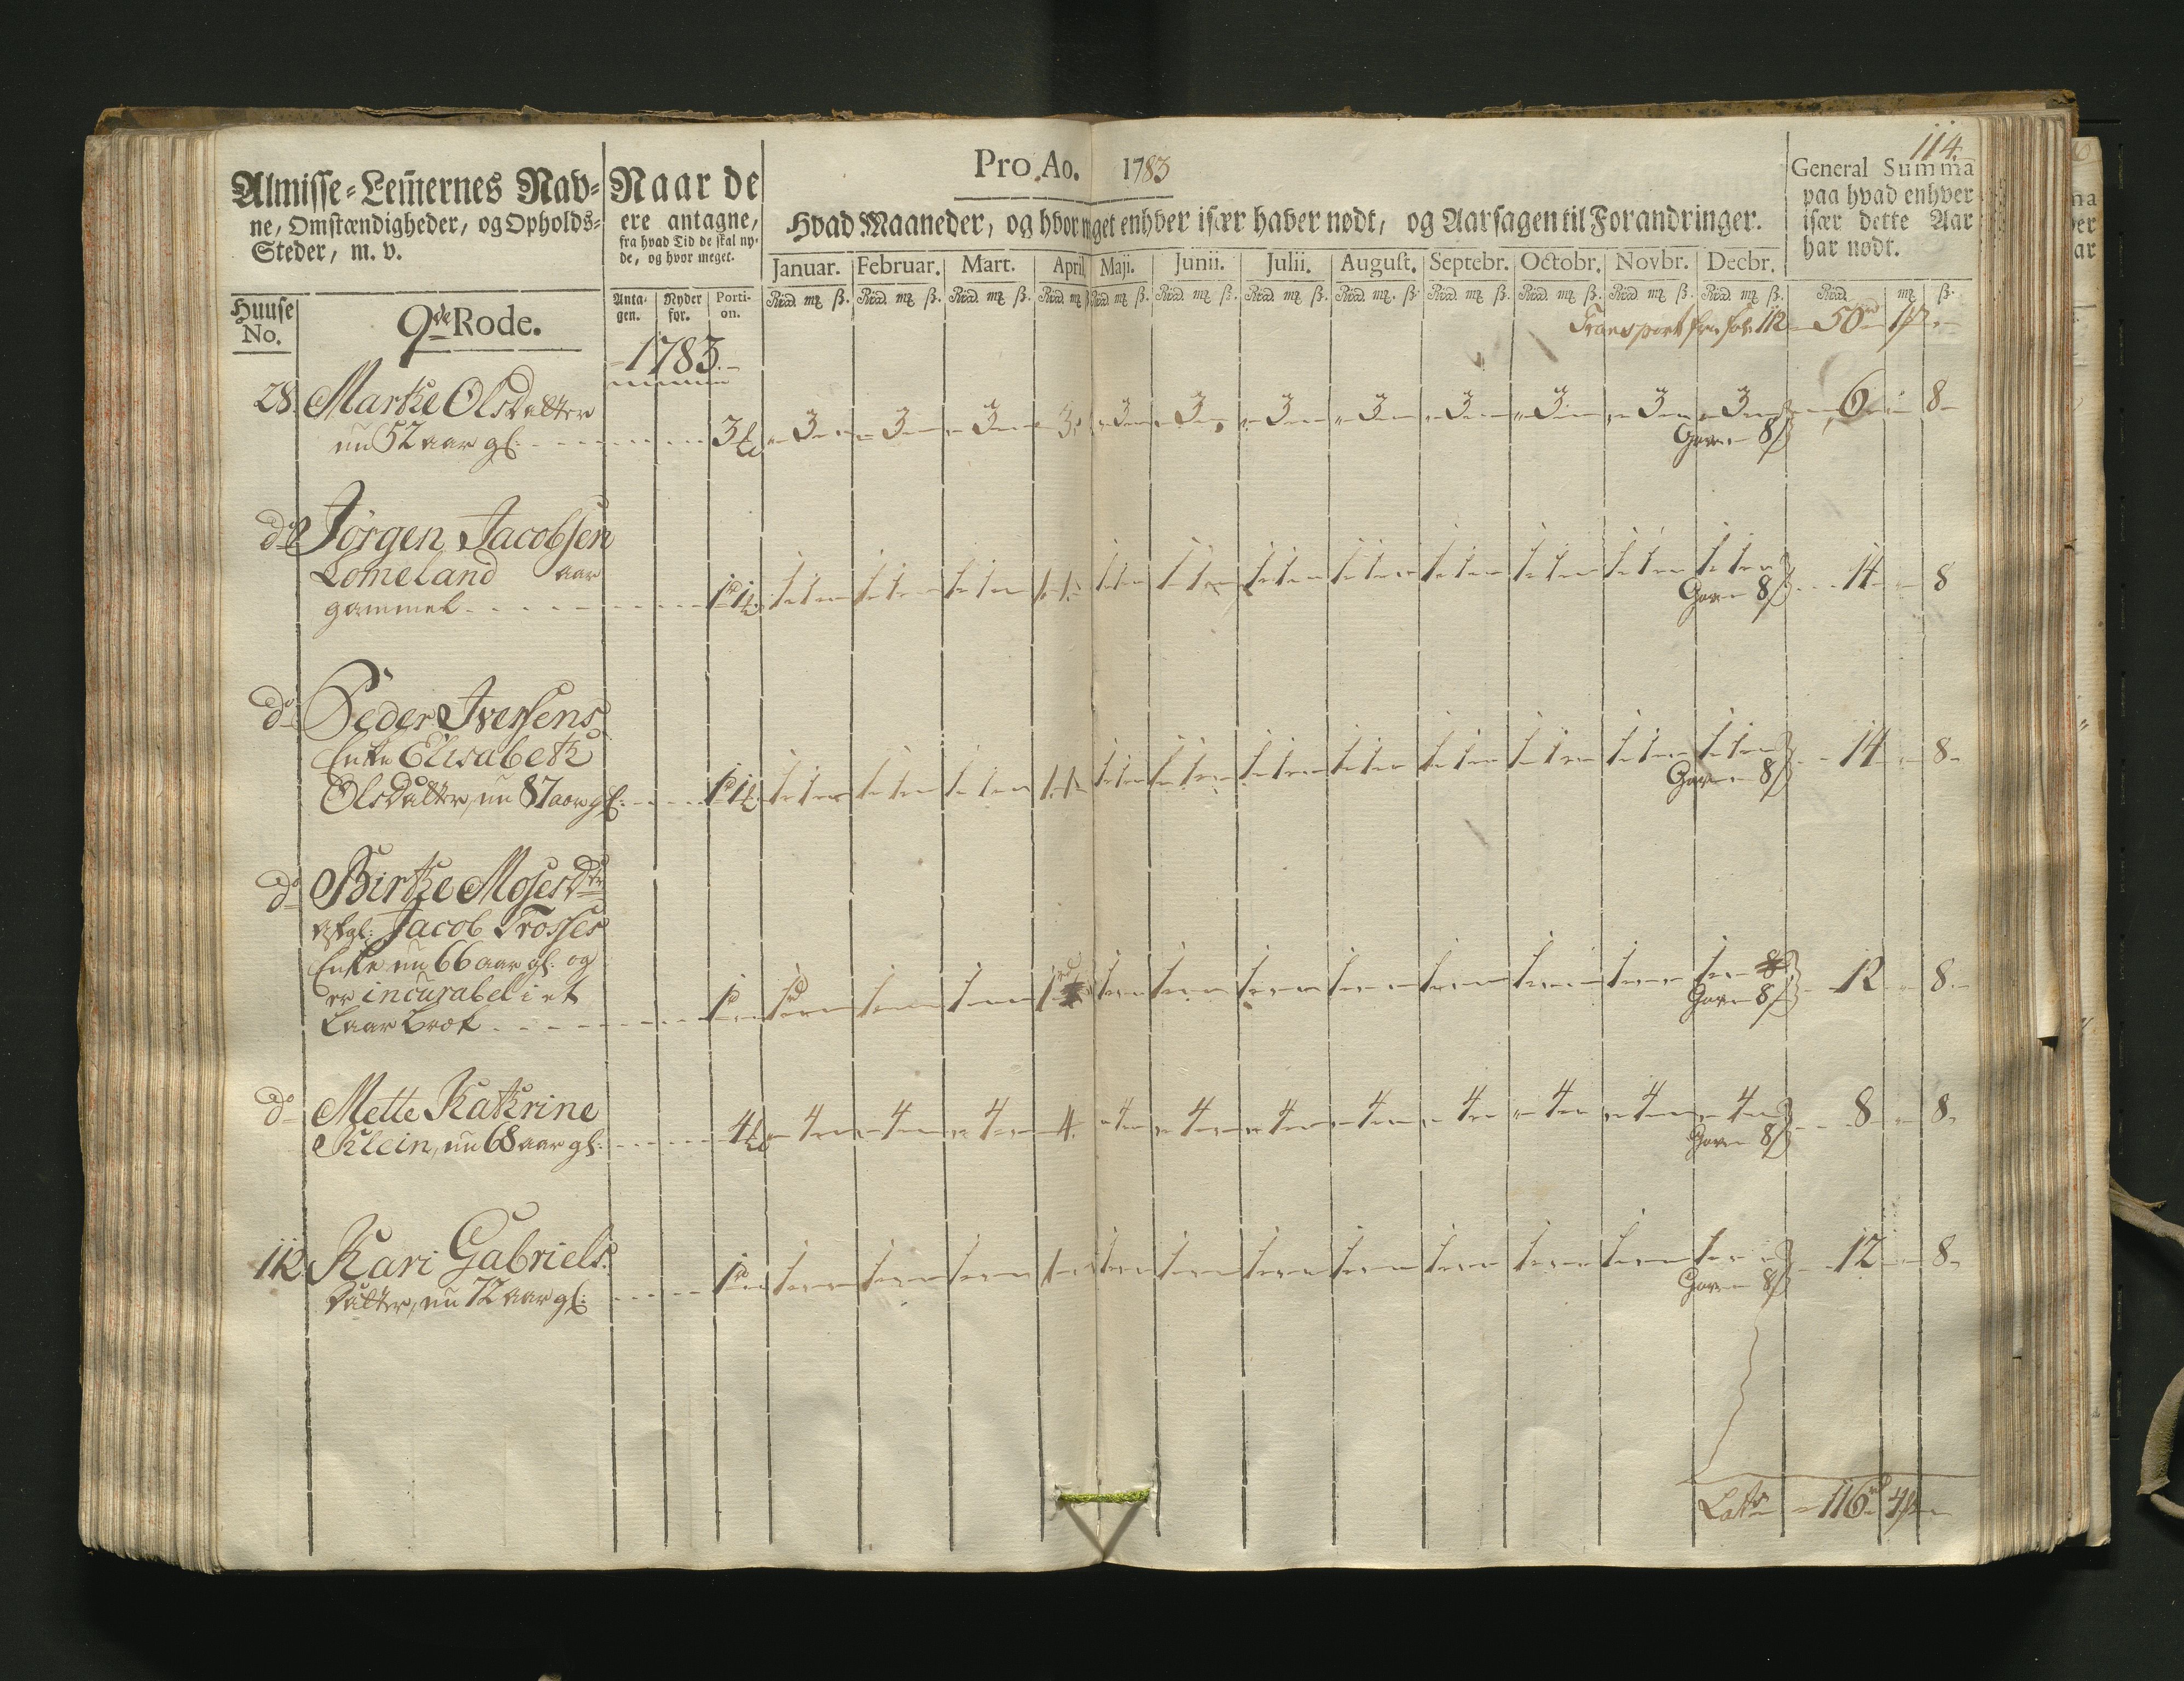 114.
Almisse-Lem̅ernes Nav-
ne, Omstændigheder, og Opholds-
Steder, m. v.
Naar de
ere antagne,
fra hvad Tid de skal ny-
de, og hvor meget.
Pro Ao. 1783
Hvad Maaneder, og hvor meget enhver især haver nødt, og Aarsagen til Forandringer.
General Summa
paa hvad enhver
især dette Aar
har nødt.
Januar. Februar. Mart. April Maji. Junii. Julii. August. Septebr. Octobr. Novbr. Decbr.
Huuse
No.
9de Rode.
Anta-
gen.
Nyder
for.
Porti-
on.
Rixd. mz ß. Rixd. mz ß. Rixd. mz ß. Rixd. mz ß. Rixd. mz ß. Rixd. mz ß. Rixd. mz ß. Rixd. mz. ß. Rixd. mz ß. Rixd. mz ß. Rixd. mz ß. Rixd. mz ß. Rixd. mz ß.
Transport fra fol. 112 50 1
1783.
28. Marthe Olsdatter
nu 52 aar gl. 3 3 3 3 3 3 3 3 3 3 3 3 3 6 8
Gave 8ß
do Jørgen Jacobsen
Lomeland aar
gammel 1 1 1 1 1 1 1 1 1 1 1 1 1 1 1 1 1 1 1 1 1 1 1 1 1 1 14 8
Gave 8ß
do Peder Iversens
Enke Elisabeth
Olsdatter, nu 87 aar gl. 1 1 1 1 1 1 1 1 1 1 1 1 1 1 1 1 1 1 1 1 1 1 1 1 1 1 14 8
Gave 8ß
do Birthe Moses Dtr
Jacob Trosses
Enke nu 66 aar gl. og
er incurabel i et
Laar Bræk 1 1 1 1 1 1 1 1 1 1 1 1 1 12 8
Gave 8ß
do Mette Kathrine
Klein, nu 68 aar gl. 4 4 4 4 4 4 4 4 4 4 4 4 4 8 8
Gave 8ß
112. Kari Gabriels
datter, nu 72 aar gl. 1 1 1 1 1 1 1 1 1 1 1 1 1 12 8
Gave 8ß
Latr 116 4